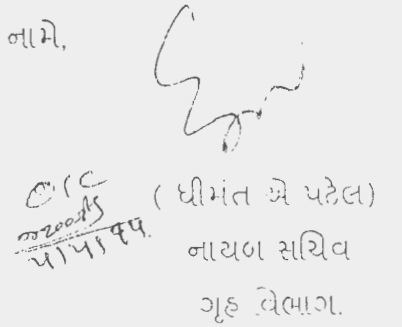 નામે,
( ધીમંત એ પટેલ)
નાયબ સચિવ
ગૃહ વિભાગ.